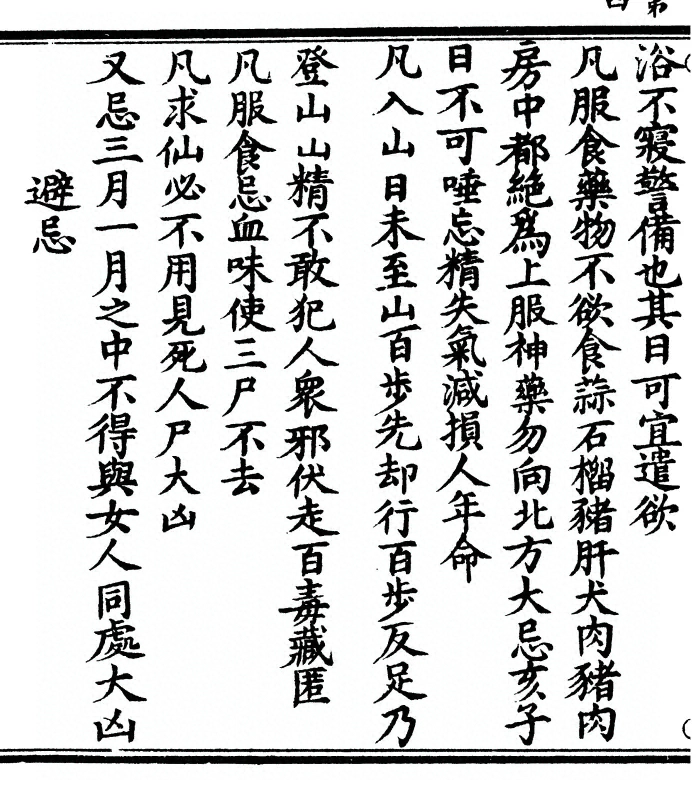 浴不寢警備也其日可宜遣欲
凡服食藥物不欲食蒜石榴豬肝犬肉豬肉
房中都絕爲上服神藥勿向北方大忌亥子
日不可唾忘精失氣減損人年命
凡入山日未至山百步先却行百步反足乃
登山山精不敢犯人衆邪伏走百毒藏匿
凡服食忌血味使三尸不去
凡求仙必不用見死人尸大凶
又忌三月一月之中不得與女人同處大凶
避忌